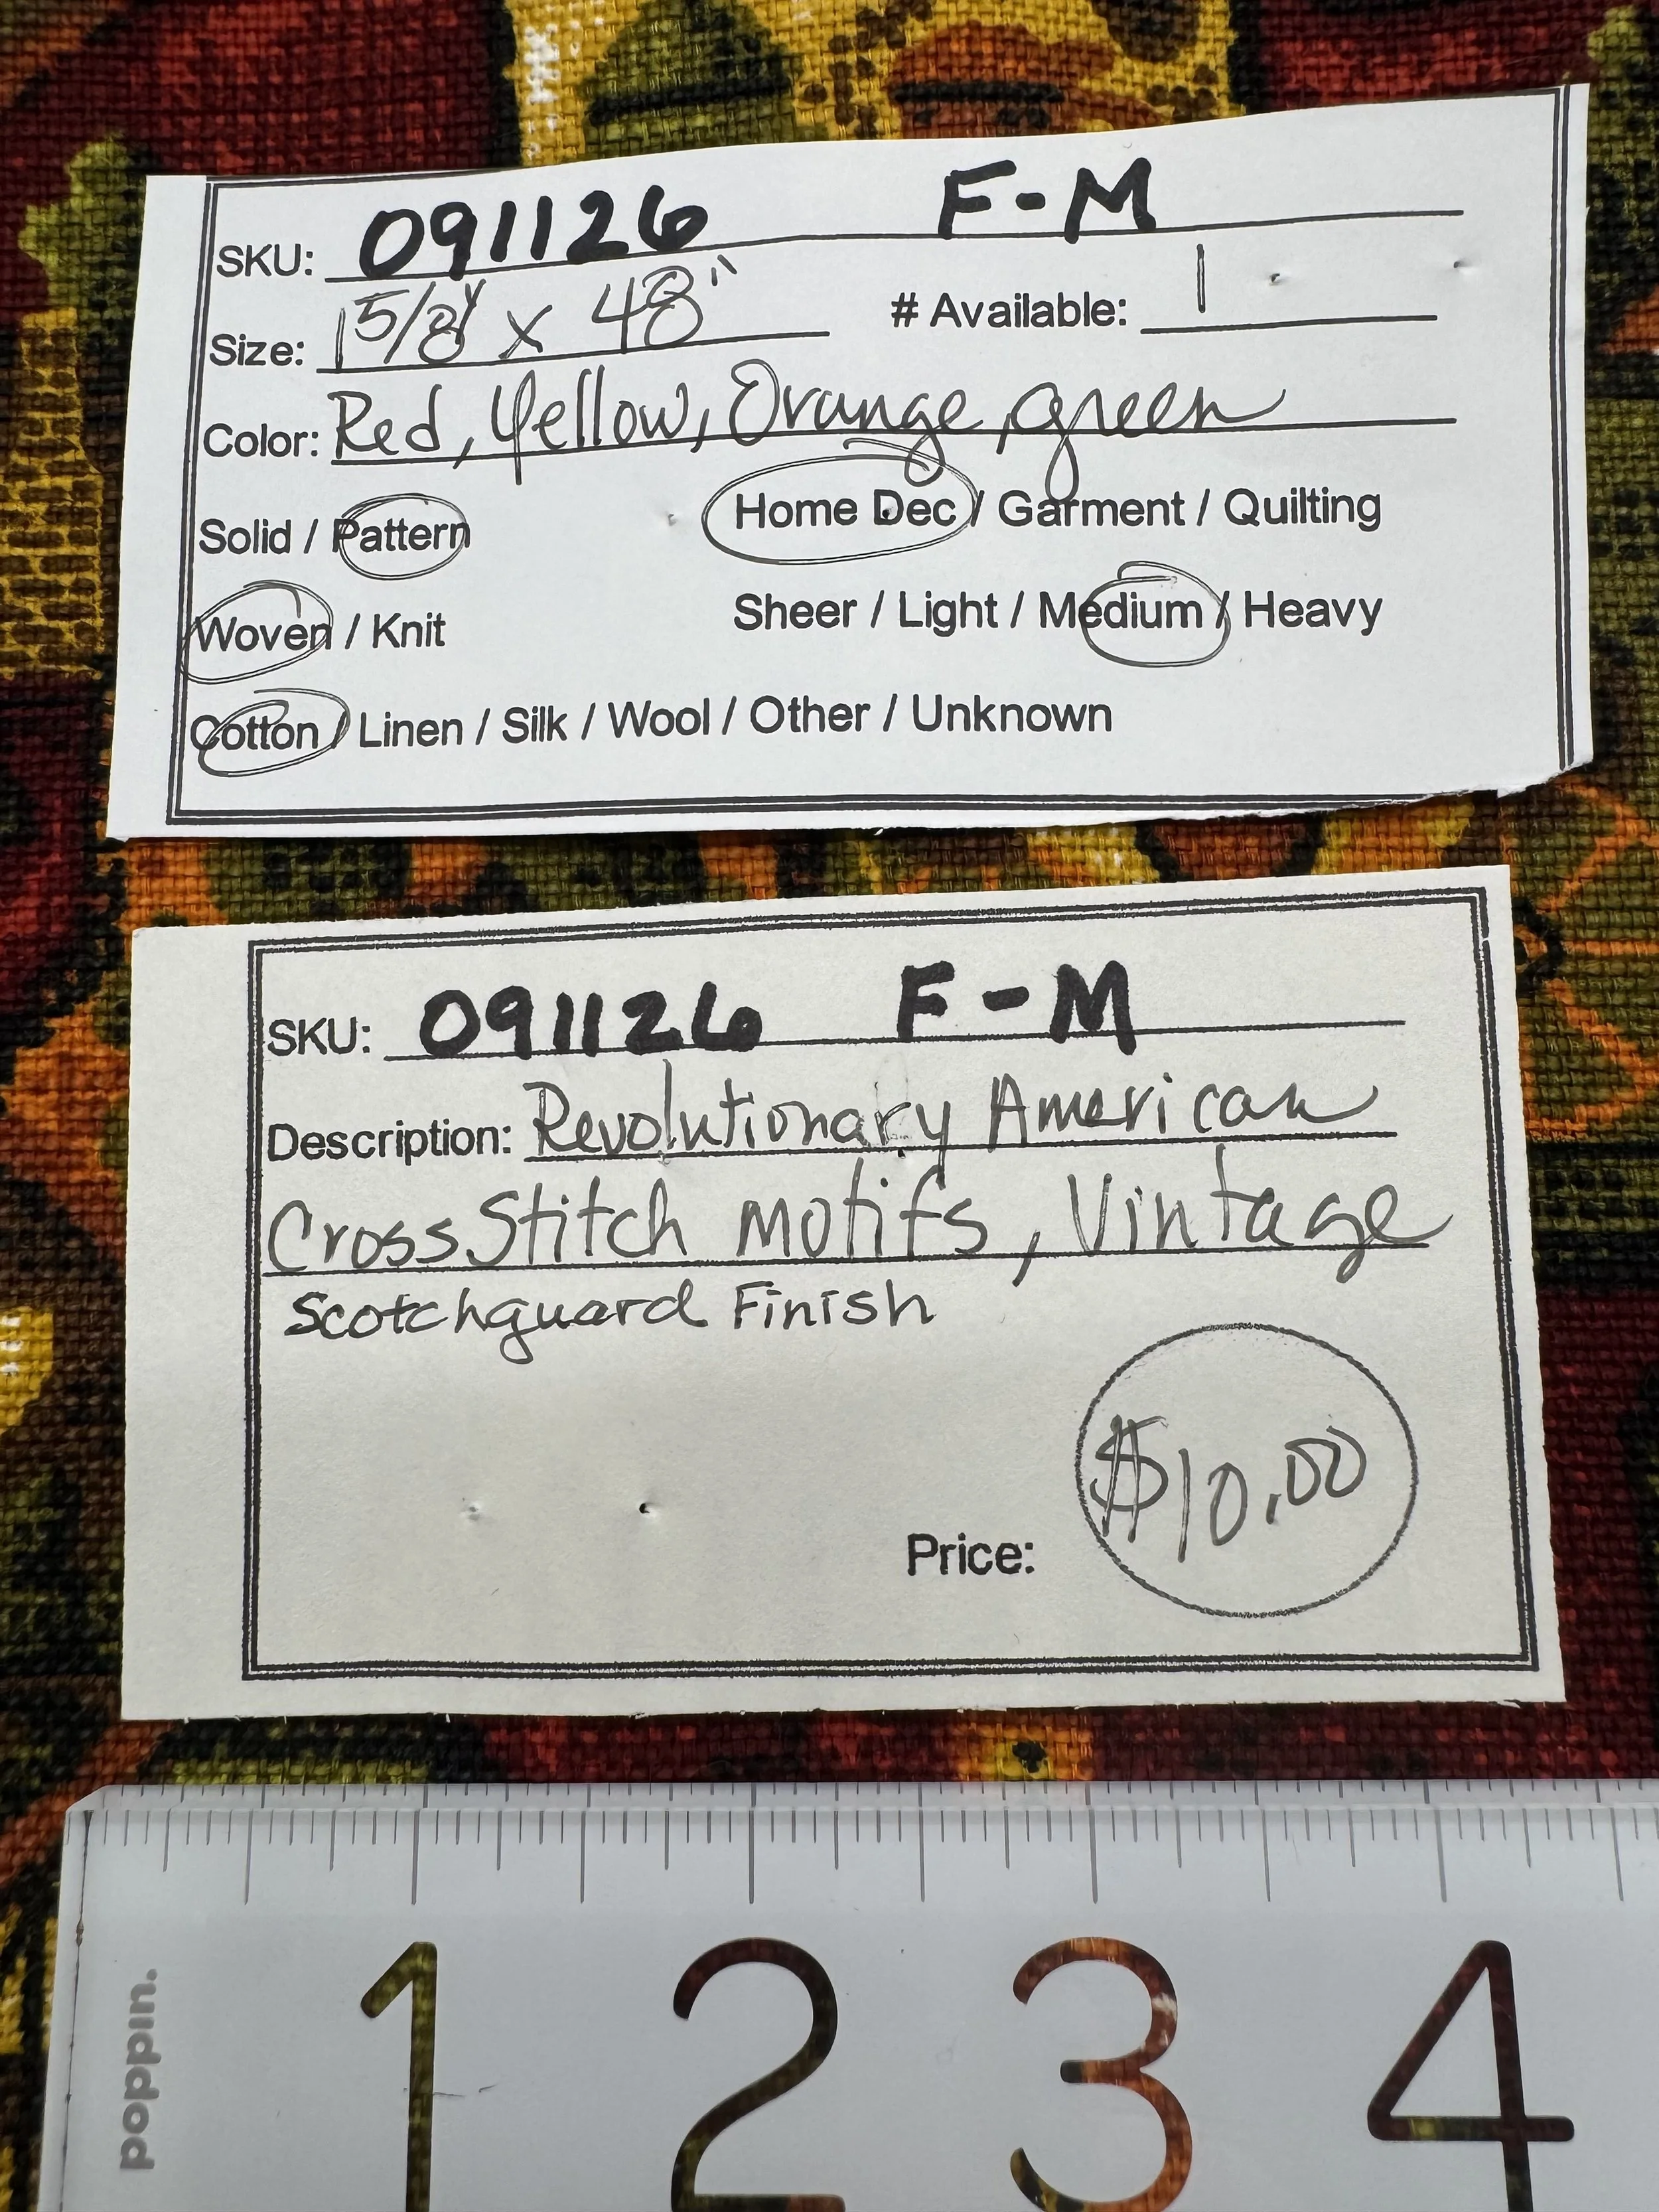 SKU: 091126 F-M
Size: 1 5/8y x 48" # Available: 1
Color: Red, Yellow, Orange, green
Solid / Pattern Home Dec / Garment / Quilting
Woven / Knit Sheer / Light / Medium / Heavy
Cotton / Linen / Silk / Wool / Other / Unknown
SKU: 091126 F-M
Description: Revolutionary American
Cross Stitch Motifs, Vintage
Scotchguard Finish
Price: $10.00
poppin.
1 2 3 4